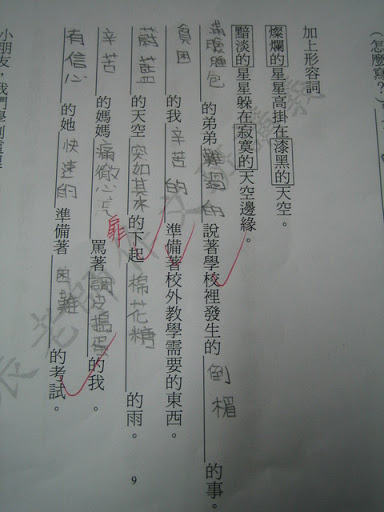 （怎麼寫？）
加上形容詞
燦爛的星星高掛在漆黑的天空。
黯淡的星星躲在寂寞的天空邊緣。
滿臉包的弟弟難過的說著學校裡發生的倒楣的事。
貧困的我辛苦的準備著校外教學需要的東西。
蔚藍的天空突如其來的下起棉花糖的雨。
辛苦的媽媽痛徹心扉罵著調皮搗蛋的我。
有信心的她快速的準備著困難的考試。
小朋友，我們學到這裡
9